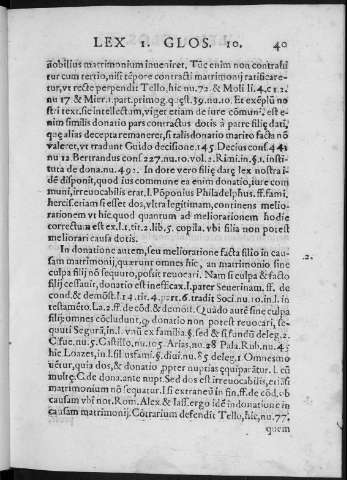 LEX 1. GLOS. 10. 40
ñobilius matrimonium inueniret. Tũc enim non contrahi
tur cum tertio, nisi tẽpore contracti matrimonij ratificare-
tur, vt recte perpendit Tello, hic nu. 72. & Moli li. 4. c 12.
nu 17 & Mier. 1. part. primog. q. est. 39. nu. 10. Et exẽplũ no
stri text. sic intellectum, viget etiam de iure cõmuni. est e-
nim similis donatio pars contractus dotis à patre filię dati,
quę alias decepta remaneret, si talis donatio marito facta nõ
valeret, vt tradunt Guido decisione. 145 Decius conf. 441
nu 12 Bertrandus conf 227. nu. 10. vol. 2. Rimi. in §. 1. insti-
tuta de dona. nu. 492. In dote vero filię darę lex nostra i-
dẽ disponit, quod ius commune ea enim donatio, iure com
muni, irreuocabilis erat, l. Põponius Philadelphus. ff. fami.
hercis. etiam si esset dos, vltra legitimam, continens melio-
rationem vt hic. quod quantum ad meliorationem hodie
correctum est ex l. 1. tit. 2. lib. 5. copila. vbi filia non potest
meliorari causa dotis.
In donatione autem, seu melioratione facta filio in cau-
sam matrimonij, quærunt omnes hic, an matrimonio sine
culpa filij nõ sequuto, possit reuocari. Nam si culpa & facto
filij cessauit, donatio est inefficax. l. pater Seuerinam. ff. de
cond. & demõst. l. 14. tit. 4. part. 6. tradit Soci. nu. 10. in l. in
restamẽto. La. 2. ff. de cõd. & demõst. Quãdo autẽ sine culpa
filij: omnes cõcludunt, q, donatio non potest reuocari, se-
quuti Segurã, in l. vnũ ex familia. §. sed & si fundũ deleg. 2.
Cifue. nu. 5. Castillo, nu. 105. Arias, nu. 28 Pala. Rub. nu. 43
hic Loazes, in l. filiusfami. §. diui. nu. 85 deleg. 1 Omnes mo
uẽtur, quia dos, & donatio, ppter nuptias equiparãtur. l. cũ
multę. C. de dona. ante nupt. Sed dos est irreuocabilis, etiãsi
matrimonium nõ sequatur. l. si extraneũ in fin. ff. de cõd. ob
causam vbi not. Rom. Alex & Iass. ergo idẽ in donatione in
causam matrimonij. Cõtrarium defendit Tello, hic, nu. 77.
quem
.2.